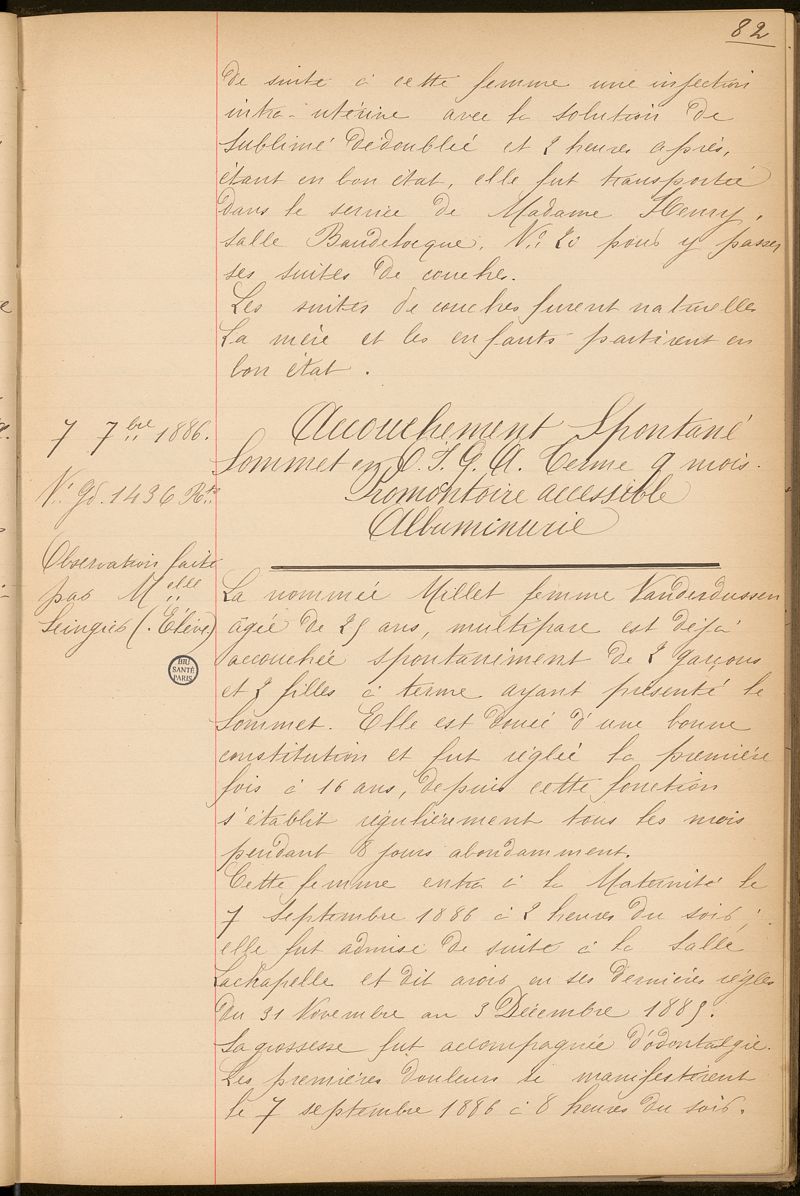 82
de suite à cette femme une infection
intra-utérine avec la solution de
sublimé dédoublée et 2 heures après,
étant en bon état, elle fut transportée
dans le service de Madame Henry,
salle Baudelocque, N° 20 pour y passer
ses suites de couches.
Les suites de couches furent naturelles
La mère et les enfants partirent en
bon état.
7 7bre 1886.
N° Gd. 1436
Observation faite
par Melle
(Elève)
BIU
SANTÉ
PARIS
Accouchement Spontané
Sommet en O.I.G.A. Terme 9 mois.
Promontoire accessible
Albuminurie
La nommée Millet femme Vanderdussen
âgée de 25 ans, multipare est déjà
accouchée spontanément de 2 garçons
et 2 filles à terme ayant présenté le
Sommet. Elle est douée d'une bonne
constitution et fut réglée la première
fois à 16 ans, depuis cette fonction
s'établit régulièrement tous les mois
pendant 8 jours abondamment.
Cette femme entra à la Maternité le
7 Septembre 1886 à 2 heures du soir,
elle fut admise de suite à la Salle
Lachapelle et dit avoir eu ses dernières règles
du 31 Novembre au 3 Décembre 1885.
Sa grossesse fut accompagnée d'odontalgie.
Les premières douleurs se manifestèrent
le 7 septembre 1886 à 8 heures du soir.